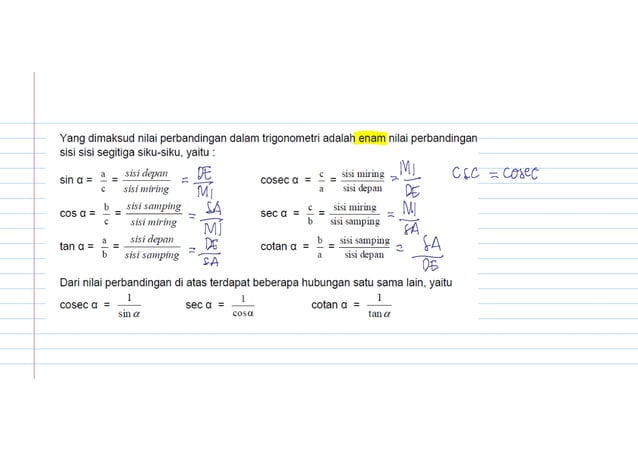 Yang dimaksud nilai perbandingan dalam trigonometri adalah enam nilai perbandingan
sisi sisi segitiga siku-siku, yaitu :
sin α = a/c = sisi depan/sisi miring = DE/MI cosec α = c/a = sisi miring/sisi depan = MI/DE CSC = cosec
cos α = b/c = sisi samping/sisi miring = SA/MI sec α = c/b = sisi miring/sisi samping = MI/SA
tan α = a/b = sisi depan/sisi samping = DE/SA cotan α = b/a = sisi samping/sisi depan = SA/DE
Dari nilai perbandingan di atas terdapat beberapa hubungan satu sama lain, yaitu
cosec α = 1/sin α sec α = 1/cosα cotan α = 1/tan α